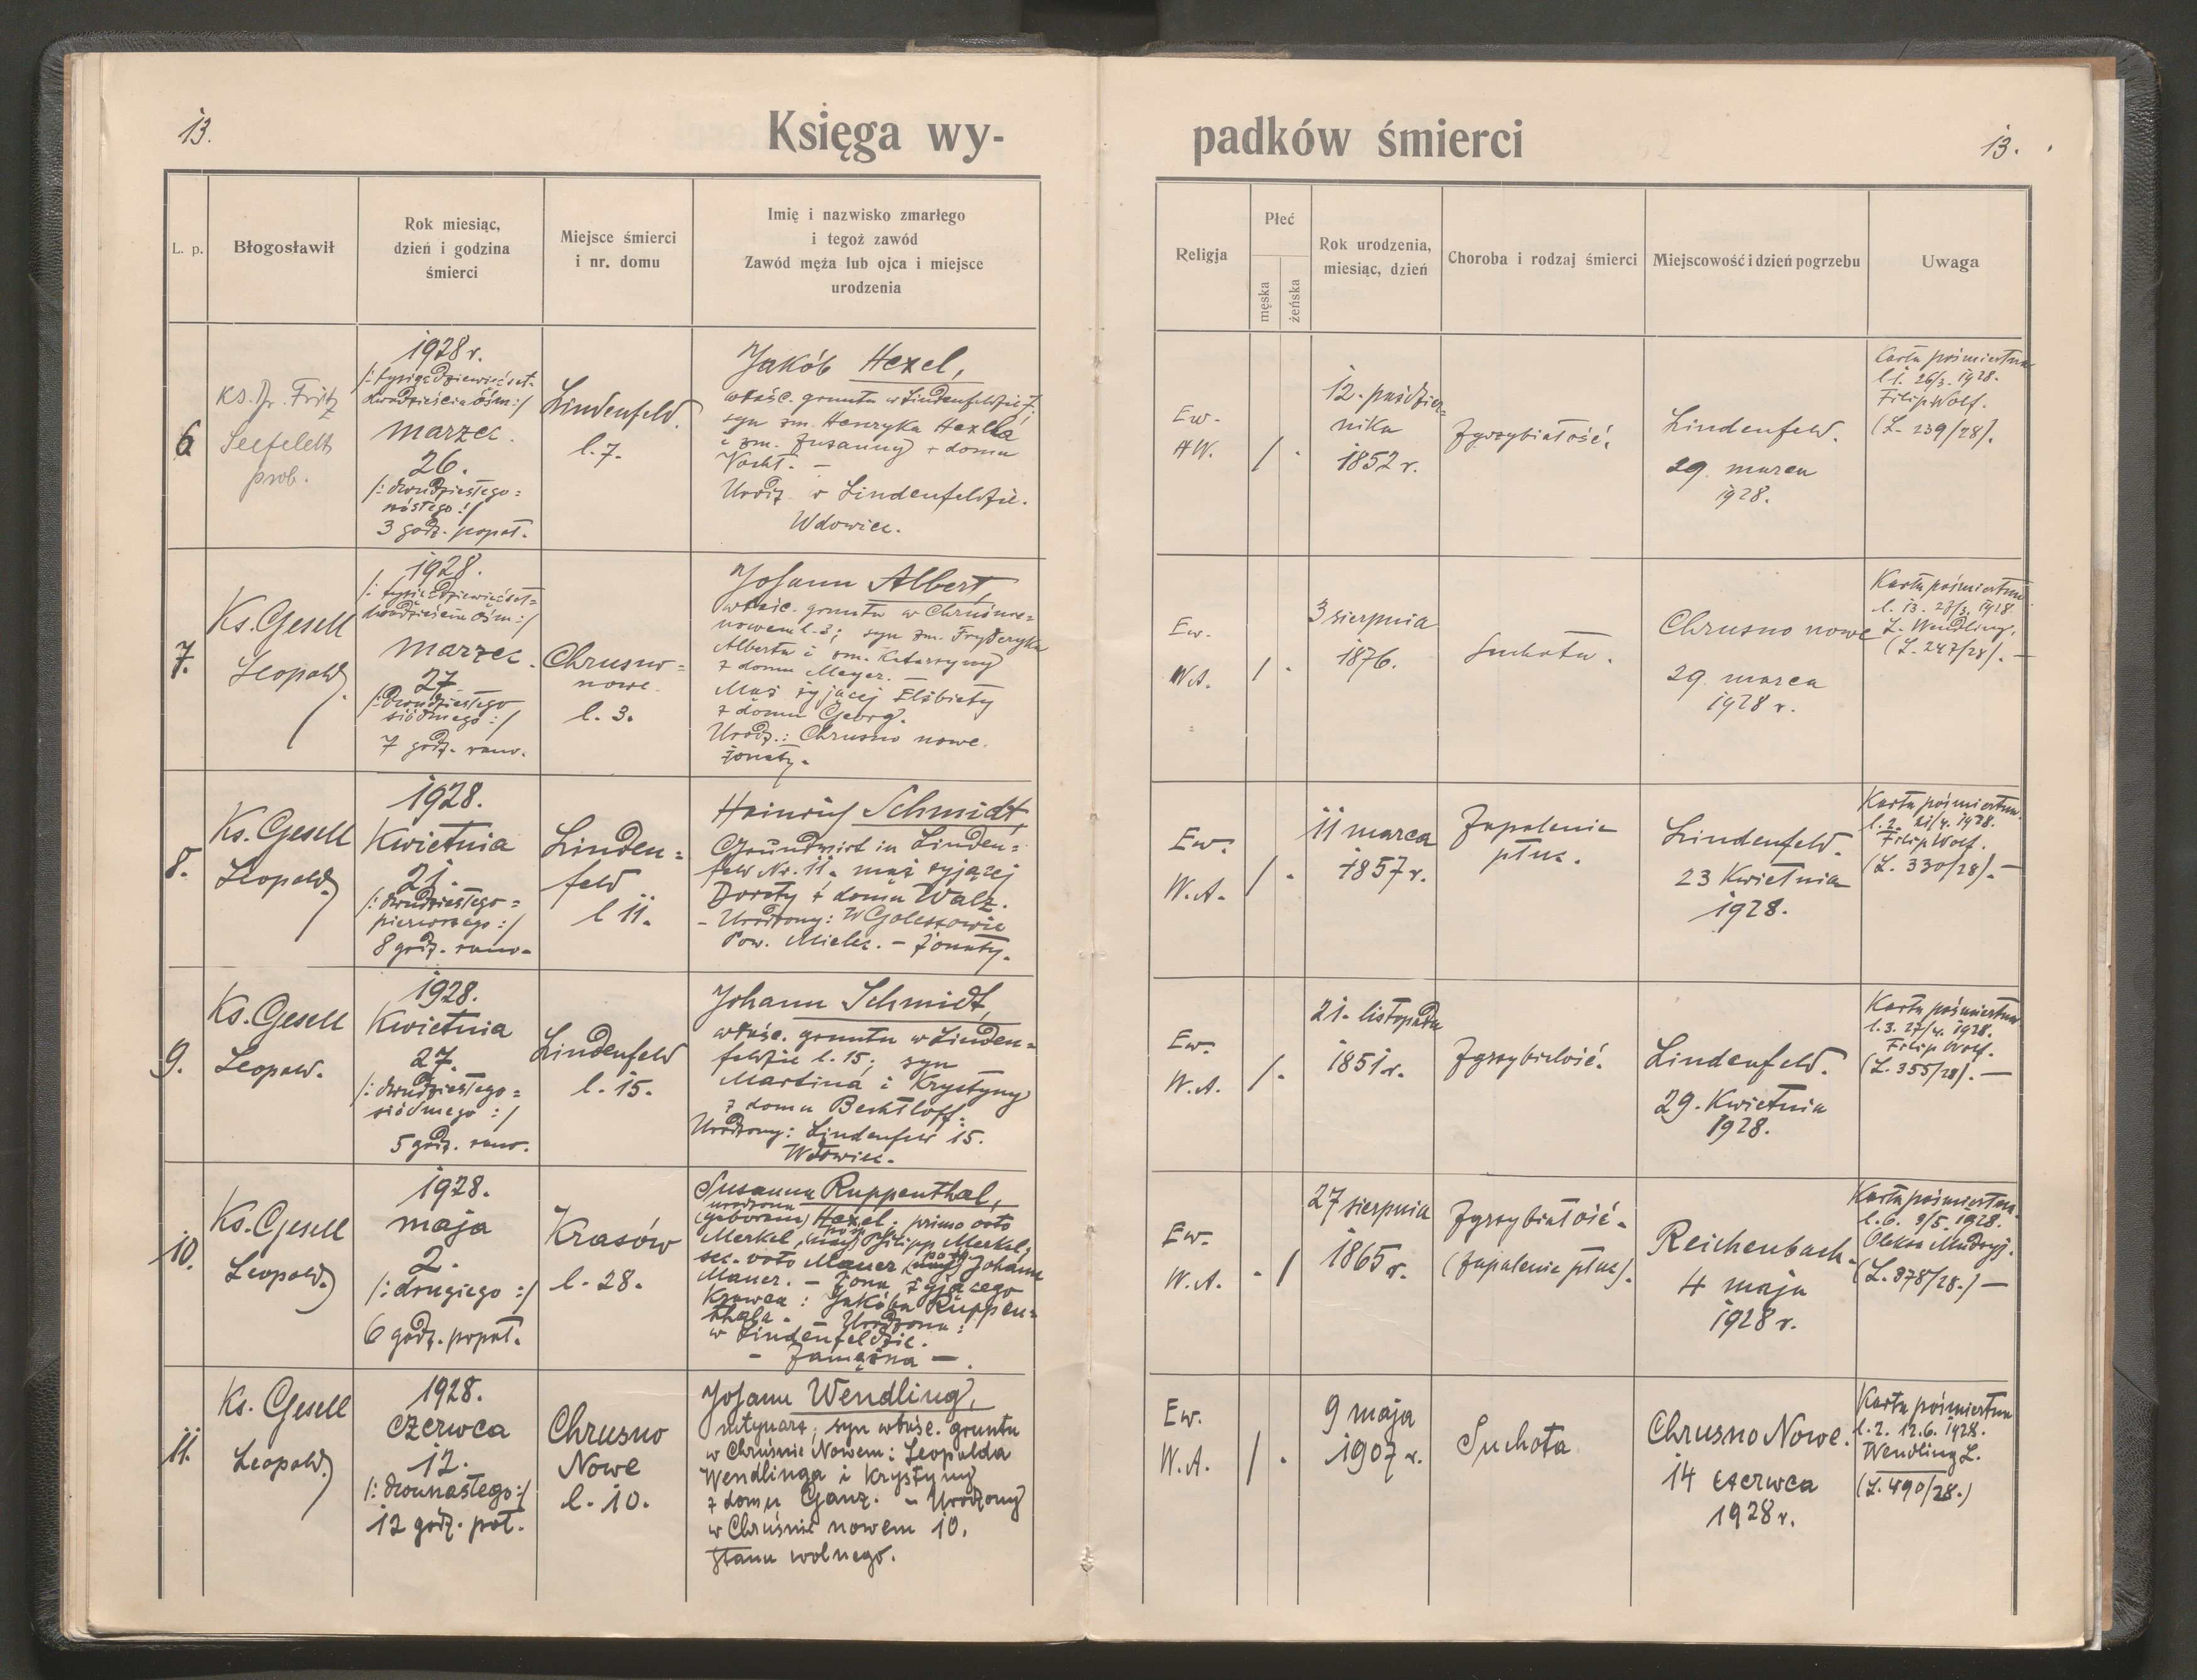 13.
Księga wy-
L. p.
Błogosławił
Rok miesiąc,
dzień i godzina
śmierci
Miejsce śmierci
i nr. domu
Imię i nazwisko zmarłego
i tegoż zawód
Zawód męża lub ojca i miejsce
urodzenia
padków śmierci
13.
Religja
Płeć
męska
żeńska
Rok urodzenia,
miesiąc, dzień
Choroba i rodzaj śmierci
Miejscowość i dzień pogrzebu
Uwaga
6
Ks. Dr. Fritz
Seefeldt
prob.
1928 r.
/: tysiącdziewięćset-
dwadzieścia ośm :/
marzec.
26.
/: dwudziestego=
szóstego :/
3 godz. popoł.
Lindenfeld.
l. 7.
Jakób Hexel,
właśc. gruntu w Lindenfeldzie 7;
syn zm. Henryka Hexla
i zm. Zuzanny z domu
Urodz. w Lindenfeldzie.
Wdowiec.
Ew.
AW.
/ -
12. paździer-
nika
1852 r.
Zgrzybiałość.
Lindenfeld.
29. marca
1928.
Karta pośmiertna
l. 1. 26/3. 1928.
Filip Wolf.
(L. 239/28).
7.
Ks. Gesell
Leopold
1928.
/: tysiącdziewięćset=
dwadzieścia ośm :/
marzec.
27.
/: dwudziestego
siódmego :/
7 godz. rano.
Chrusno=
nowe.
l. 3.
Johann Albert,
właśc. gruntu w Chruśnie=
nowem l. 3; syn zm. Fryderyka
Alberta i zm. Katarzyny
z domu Meyer. -
Mąż żyjącej Elżbiety
z domu Georg.
Urodz.: Chrusno nowe.
żonaty.
Ew.
W.A.
/ -
3 sierpnia
1876.
Suchota.
Chrusno nowe
29. marca
1928 r.
Karta pośmiertna
l. 13. 27/3. 1928.
L. Wendling.
(L. 247/28). -
8.
Ks. Gesell
Leopold
1928.
Kwietnia
21.
/: dwudziestego=
pierwszego :/
8 godz. rano.
Linden=
feld
l 11.
Heinrich Schmidt,
Grundwirt in Linden=
feld Nr. 11. mąż żyjącej
Doroty z domu Walz.
- Urodzony: W Goleszowie
Pow. Mielec. - żonaty.
Ew.
W.A.
/ -
11 marca
1857 r.
Zapalenie
płuc.
Lindenfeld.
23 Kwietnia
1928.
Karta pośmiertna.
l. 2. 21/4. 1928.
Filip Wolf.
(L. 330/28). -
9.
Ks. Gesell
Leopold.
1928.
Kwietnia
27.
/: dwudziestego=
siódmego :/
5 godz. rano.
Lindenfeld
l. 15.
Johann Schmidt,
właśc. gruntu w Linden=
feldzie l. 15; syn
Martina i Krystyny
z domu Bechtloff.
Urodzony: Lindenfeld 15.
Wdowiec.
Ew.
W.A.
/ -
21. listopada
1851 r.
Zgrzybiałość.
Lindenfeld.
29. Kwietnia
1928.
Karta pośmiertna
l. 3. 27/4. 1928.
Filip Wolf.
(L. 355/28). -
10.
Ks. Gesell
Leopold
1928.
maja
2.
/: drugiego :/
6 godz. popoł.
Krasów
l. 28.
Susanna Ruppenthal,
urodzona
(geborene) Hexel; primo voto
Merkel, Filipp Merkel;
sec. voto Mauer Johann
Mauer. - Żona żyjącego
Krawca: Jakóba Ruppen=
thala. - Urodzona:
w Lindenfeldzie.
- Zamężna -
Ew.
W.A.
- /
27 sierpnia
1865 r.
Zgrzybiałość -
(zapalenie płuc).
Reichenbach.
4 maja
1928 r.
Karta pośmiertna.
l. 6. 3/5. 1928.
Oleksa Mudryj.
(L. 378/28.) -
11.
Ks. Gesell
Leopold
1928.
Czerwca
12.
/: dwunastego :/
12 godz. poł.
Chrusno
Nowe
l. 10.
Johann Wendling,
syn właśc. gruntu
w Chruśnie Nowem: Leopolda
Wendlinga i Krystyny
z domu Ganz. - Urodzony
w Chruśnie nowem 10.
Stanu wolnego.
Ew.
W.A.
/ -
9 maja
1907 r.
Suchota
Chrusno Nowe.
14 czerwca
1928 r.
Karta pośmiertna
l. 2. 12.6. 1928.
Wendling L.
(L. 490/28.)